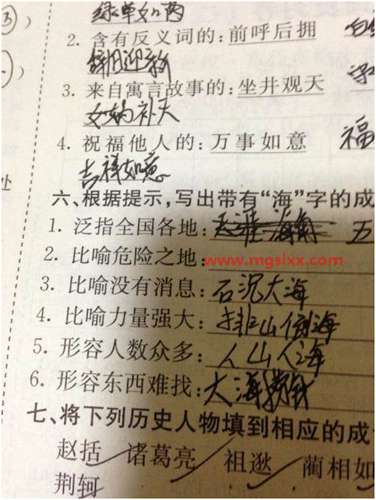 绿草如茵
2. 含有反义词的: 前呼后拥
辞旧迎新
3. 来自寓言故事的: 坐井观天
女娲补天
4. 祝福他人的: 万事如意 福
吉祥如意
六、根据提示,写出带有“海”字的成
1. 泛指全国各地: 海角 五
2. 比喻危险之地:
www.mgslxx.com
3. 比喻没有消息: 石沉大海
4. 比喻力量强大: 排山倒海
5. 形容人数众多: 人山人海
6. 形容东西难找: 大海捞针
七、将下列历史人物填到相应的成
赵括 诸葛亮 祖逖 蔺相如
荆轲